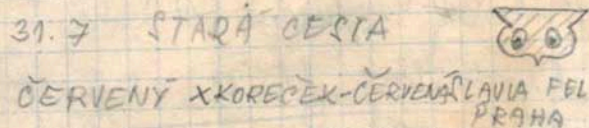 31.7 STARÁ CESTA
ČERVENÝ XKOREČEK-ČERVENÁ SLAVIA FEL
PRAHA